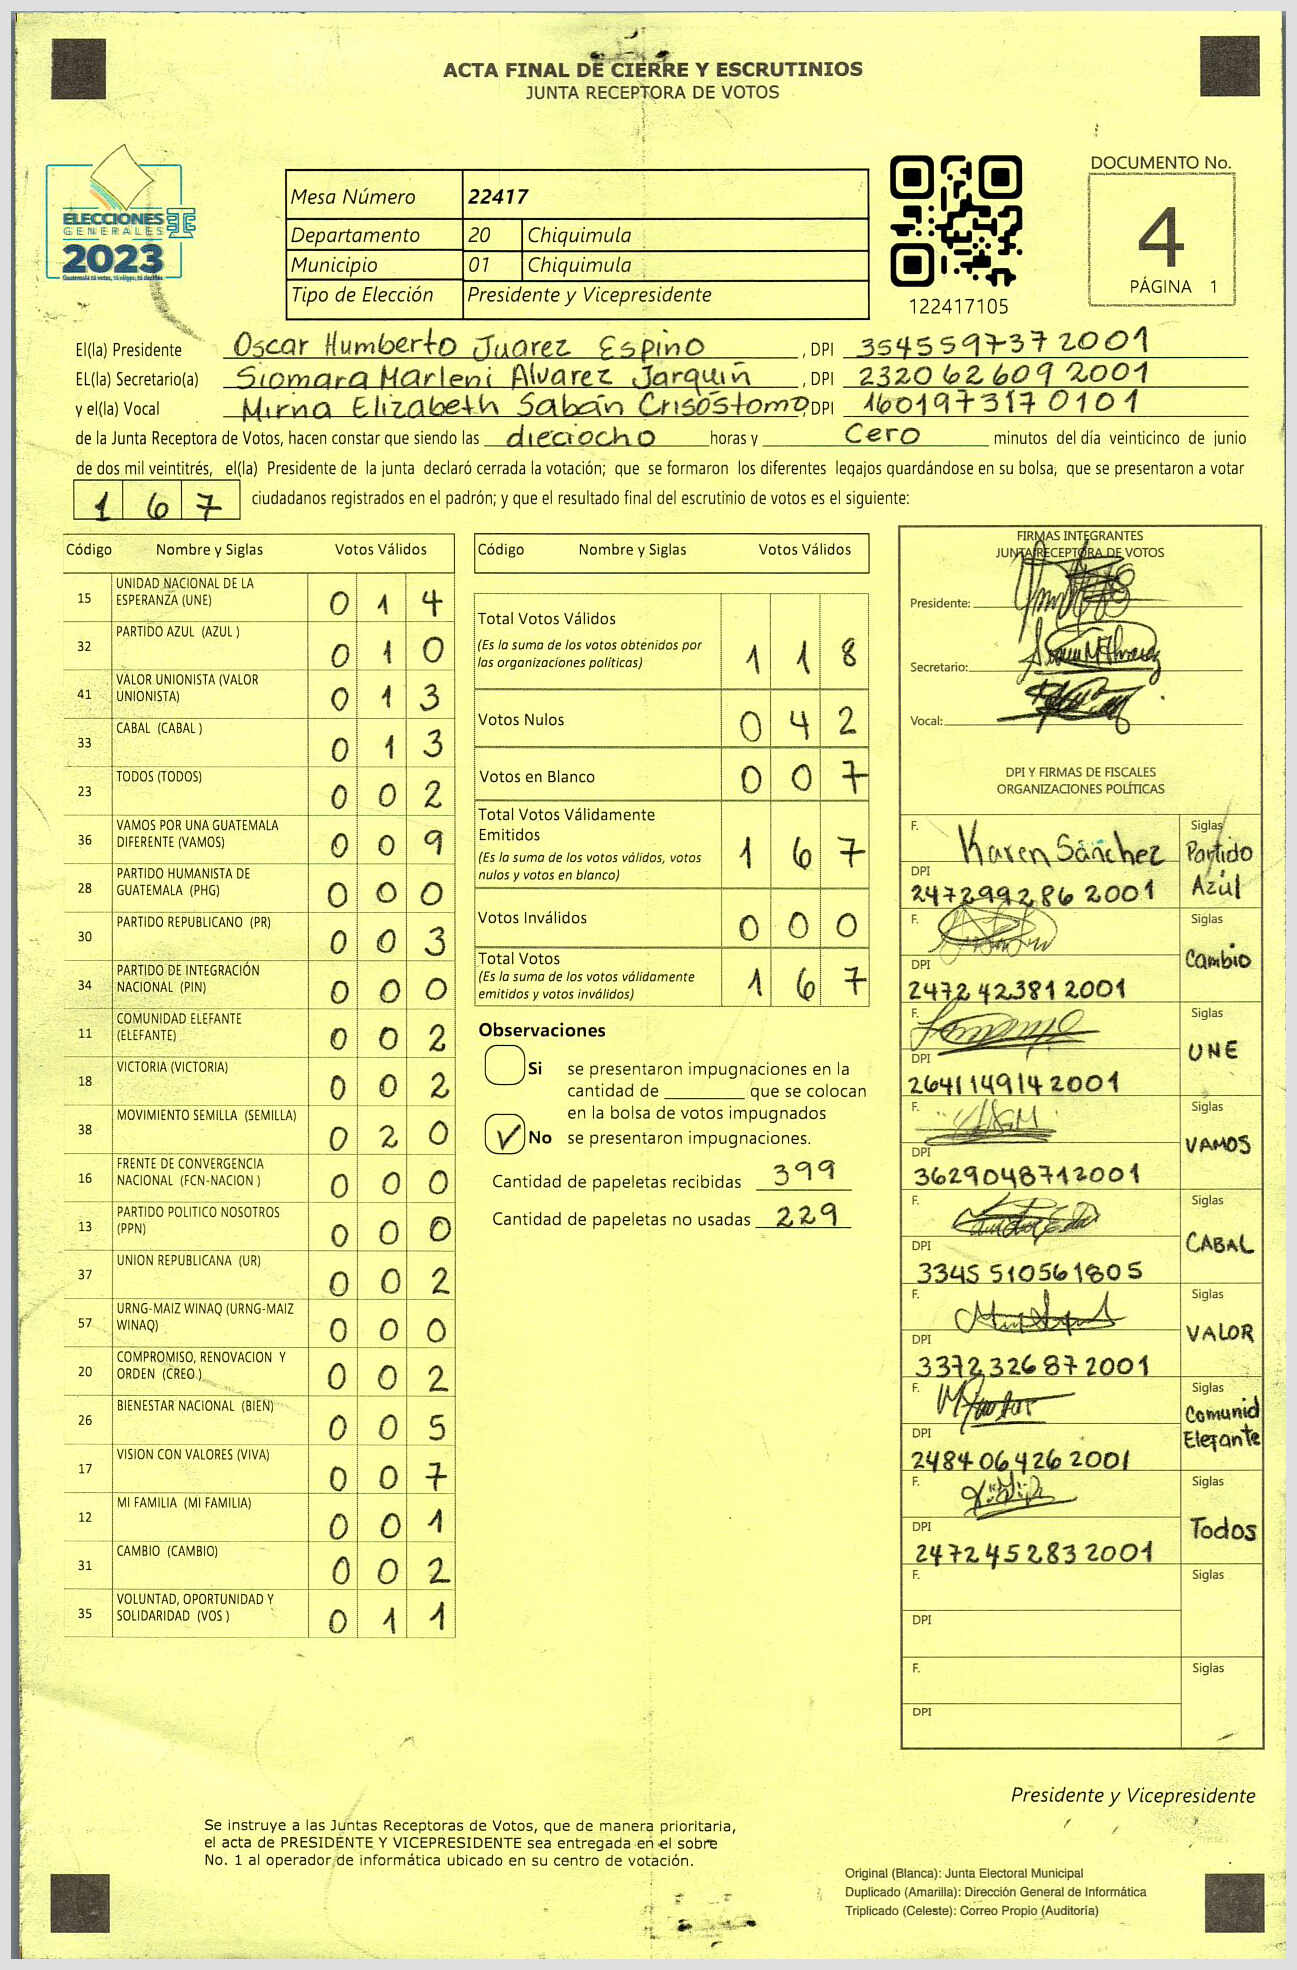 ACTA FINAL DE CIERRE Y ESCRUTINIOS
JUNTA RECEPTORA DE VOTOS
ELECCIONES
GENERALES
2023
Guatemala tú votas, tú eliges, tú decides
Mesa Número 22417
Departamento 20 Chiquimula
Municipio 01 Chiquimula
Tipo de Elección Presidente y Vicepresidente
122417105
DOCUMENTO No.
4
PÁGINA 1
El(la) Presidente Oscar Humberto Juarez Espino, DPI 354559737 2001
EL(la) Secretario(a) Siomara Marleni Alvarez Jarquín, DPI 2320 62609 2001
y el(la) Vocal Mirna Elizabeth Sabán Crisóstomo, DPI 1601973170101
de la Junta Receptora de Votos, hacen constar que siendo las dieciocho horas y Cero minutos del día veinticinco de junio
de dos mil veintitrés, el(la) Presidente de la junta declaró cerrada la votación; que se formaron los diferentes legajos guardándose en su bolsa, que se presentaron a votar
167 ciudadanos registrados en el padrón; y que el resultado final del escrutinio de votos es el siguiente:
Código Nombre y Siglas Votos Válidos
15 UNIDAD NACIONAL DE LA ESPERANZA (UNE) 0 1 4
32 PARTIDO AZUL (AZUL ) 0 1 0
41 VALOR UNIONISTA (VALOR UNIONISTA) 0 1 3
33 CABAL (CABAL ) 0 1 3
23 TODOS (TODOS) 0 0 2
36 VAMOS POR UNA GUATEMALA DIFERENTE (VAMOS) 0 0 9
28 PARTIDO HUMANISTA DE GUATEMALA (PHG) 0 0 0
30 PARTIDO REPUBLICANO (PR) 0 0 3
34 PARTIDO DE INTEGRACIÓN NACIONAL (PIN) 0 0 0
11 COMUNIDAD ELEFANTE (ELEFANTE) 0 0 2
18 VICTORIA (VICTORIA) 0 0 2
38 MOVIMIENTO SEMILLA (SEMILLA) 0 2 0
16 FRENTE DE CONVERGENCIA NACIONAL (FCN-NACION ) 0 0 0
13 PARTIDO POLITICO NOSOTROS (PPN) 0 0 0
37 UNION REPUBLICANA (UR) 0 0 2
57 URNG-MAIZ WINAQ (URNG-MAIZ WINAQ) 0 0 0
20 COMPROMISO, RENOVACION Y ORDEN (CREO ) 0 0 2
26 BIENESTAR NACIONAL (BIEN) 0 0 5
17 VISION CON VALORES (VIVA) 0 0 7
12 MI FAMILIA (MI FAMILIA) 0 0 1
31 CAMBIO (CAMBIO) 0 0 2
35 VOLUNTAD, OPORTUNIDAD Y SOLIDARIDAD (VOS ) 0 1 1
Código Nombre y Siglas Votos Válidos
Total Votos Válidos 1 1 8
(Es la suma de los votos obtenidos por
las organizaciones políticas)
Votos Nulos 0 4 2
Votos en Blanco 0 0 7
Total Votos Válidamente
Emitidos 1 6 7
(Es la suma de los votos válidos, votos
nulos y votos en blanco)
Votos Inválidos 0 0 0
Total Votos 1 6 7
(Es la suma de los votos válidamente
emitidos y votos inválidos)
Observaciones
Si se presentaron impugnaciones en la
cantidad de ________ que se colocan
en la bolsa de votos impugnados
✓ No se presentaron impugnaciones.
Cantidad de papeletas recibidas 399
Cantidad de papeletas no usadas 229
FIRMAS INTEGRANTES
JUNTA RECEPTORA DE VOTOS
Presidente:
Secretario:
Vocal:
DPI Y FIRMAS DE FISCALES
ORGANIZACIONES POLÍTICAS
F. Karen Sánchez Siglas Partido Azúl
DPI 247299286 2001
F. Siglas Cambio
DPI 2472 42381 2001
F. Siglas UNE
DPI 264114914 2001
F. Siglas VAMOS
DPI 3629048712001
F. Siglas CABAL
DPI 3345 510561805
F. Siglas VALOR
DPI 337232687 2001
F. Siglas Comunid Elefante
DPI 248406426 2001
F. Siglas Todos
DPI 247245283 2001
F. Siglas
DPI
F. Siglas
DPI
Presidente y Vicepresidente
Se instruye a las Juntas Receptoras de Votos, que de manera prioritaria,
el acta de PRESIDENTE Y VICEPRESIDENTE sea entregada en el sobre
No. 1 al operador de informática ubicado en su centro de votación.
Original (Blanca): Junta Electoral Municipal
Duplicado (Amarilla): Dirección General de Informática
Triplicado (Celeste): Correo Propio (Auditoría)